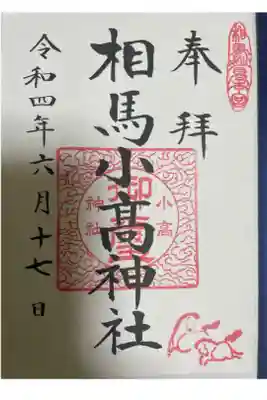 奉拝
相馬小高神社
令和四年六月十七日
小高
神社